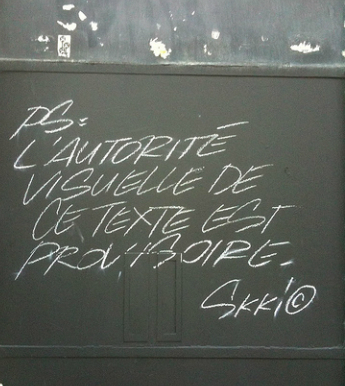 PS:
L'AUTORITÉ
VISUELLE DE
CE TEXTE EST
PROVISOIRE.
SKKi©